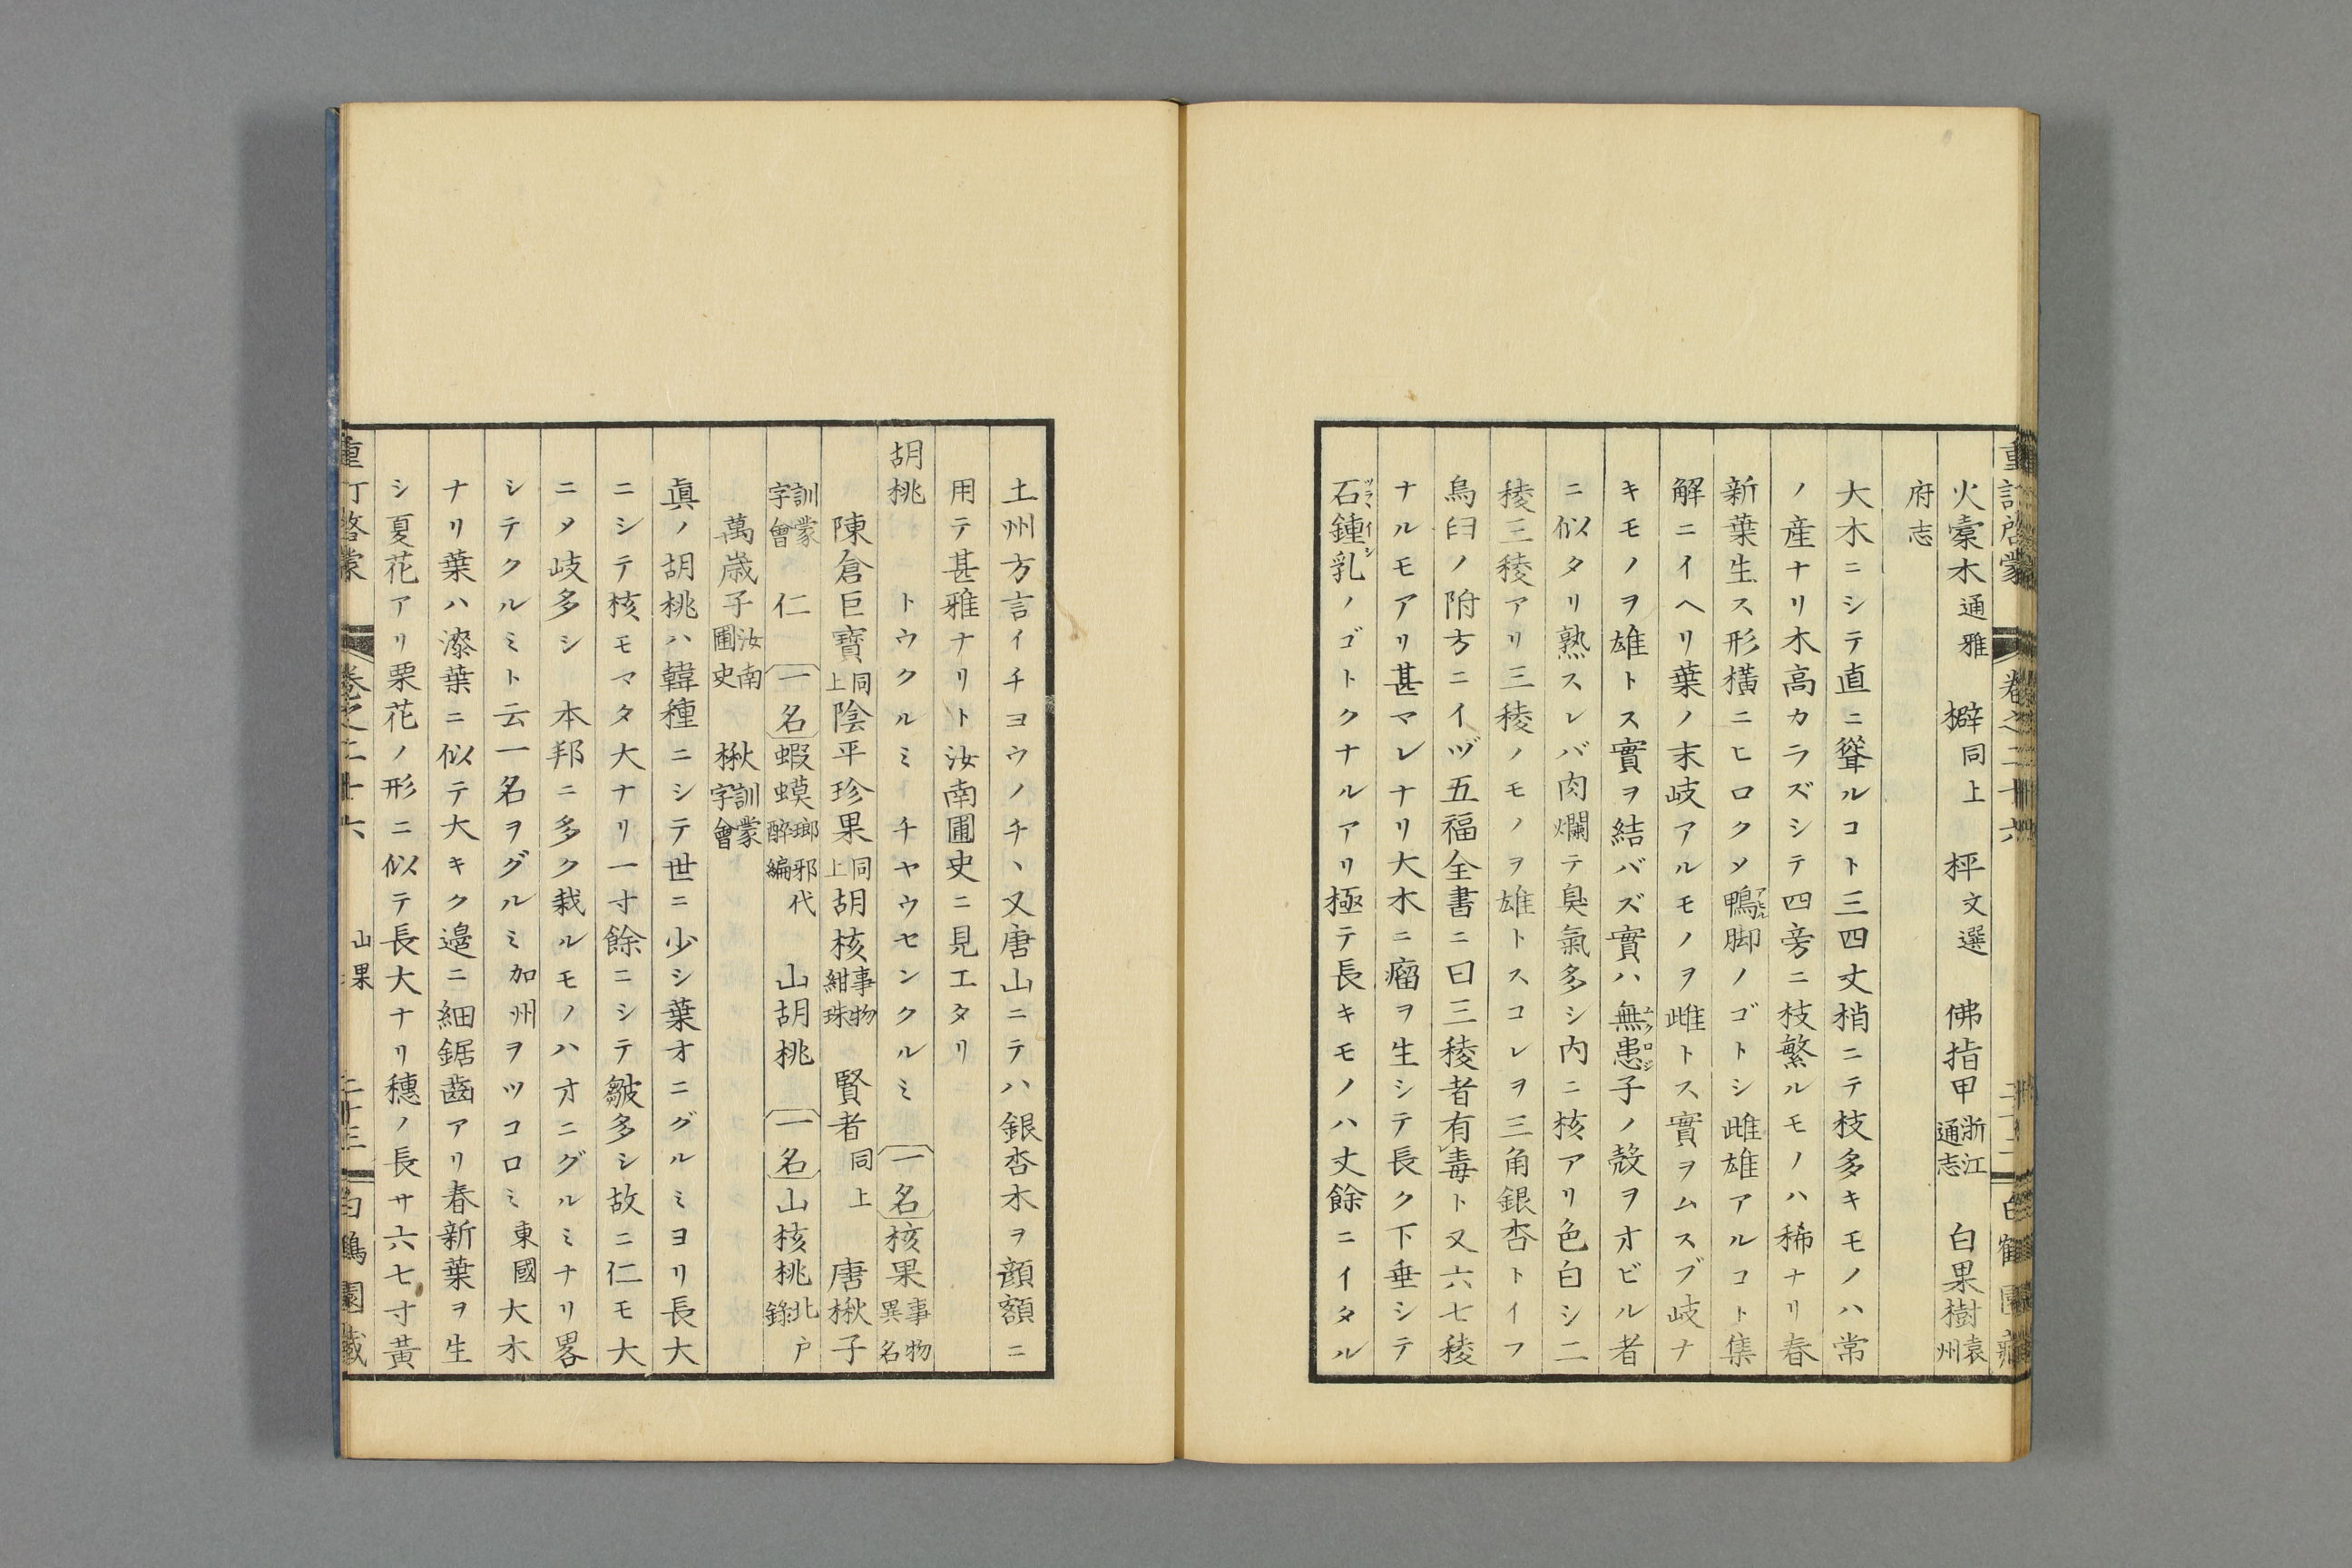 火槖木通雅　檘同上　枰文選　佛指甲浙江通志　白果樹袁州
府志
大木ニシテ直ニ聳ルコト三四丈梢ニテ枝多キモノハ常
ノ産ナリ木高カラズシテ四旁ニ枝繁ルモノハ稀ナリ春
新葉生ス形橫ニヒロクメ鴨脚ノゴトシ雌雄アルコト集
解ニイヘリ葉ノ末岐アルモノヲ雌トス實ヲムスブ岐ナ
キモノヲ雄トス實ヲ結バズ實ハ無患子ノ殼ヲオビル者
ニ似タリ熟スレバ肉爛テ臭氣多シ內ニ核アリ色白シ二
稜三稜アリ三稜ノモノヲ雄トスコレヲ三角銀杏トイフ
烏臼ノ附方ニイヅ五福全書ニ曰三稜者有毒ト又六七稜
ナルモアリ甚マレナリ大木ニ瘤ヲ生シテ長ク下垂シテ
石鍾乳ノゴトクナルアリ極テ長キモノハ丈餘ニイタル
土州方言イチヨウノチヽ又唐山ニテハ銀杏木ヲ顔額ニ
用テ甚雅ナリト汝南圃史ニ見エタリ
胡桃　トウクルミ　チヤウセンクルミ　一名核果事物異名
陳倉巨寶同上陰平珍果同上胡核事物紺珠　賢者同上　唐楸子
訓蒙字會　仁　一名蝦蟆瑯邪代醉編　山胡桃　一名山核桃北戶錄
萬歲子汝南圃史　楸訓蒙字會
眞ノ胡桃ハ韓種ニシテ世ニ少シ葉オニグルミヨリ長大
ニシテ核モマタ大ナリ一寸餘ニシテ皺多シ故ニ仁モ大
ニメ岐多シ　本邦ニ多ク栽ルモノハオニグルミナリ畧
シテクルミト云一名ヲグルミ加州ヲツコロミ東國大木
ナリ葉ハ漆葉ニ似テ大キク邊ニ細鋸齒アリ春新葉ヲ生
シ夏花アリ栗花ノ形ニ似テ長大ナリ穗ノ長サ六七寸黃
重訂啓蒙　卷之二十六　山果　二十三　白鶴園藏